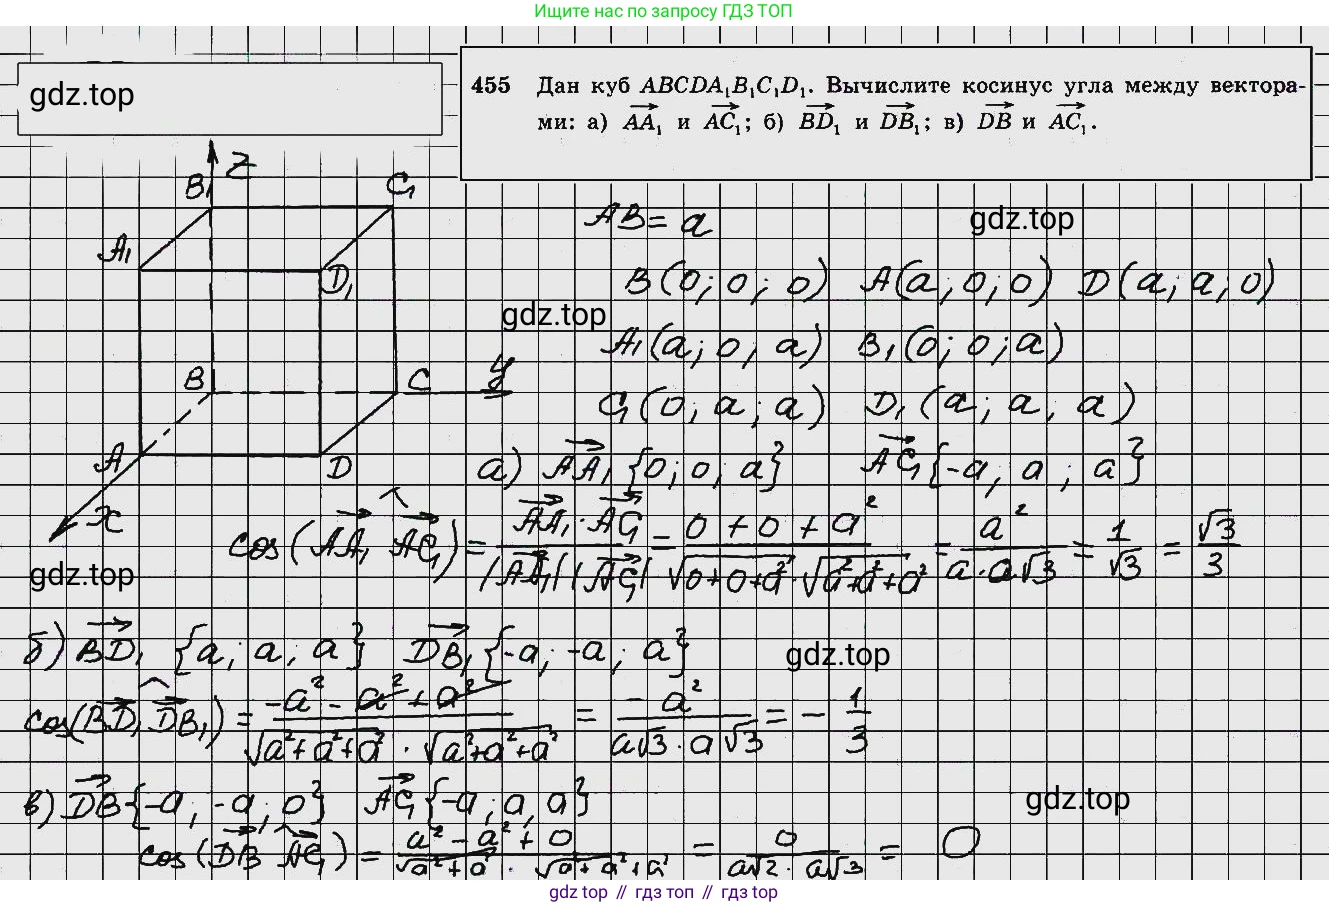 Ищите нас по запросу ГДЗ ТОП
gdz.top
455 Дан куб ABCDA₁B₁C₁D₁. Вычислите косинус угла между вектора-
ми: а) AA₁ и AC₁; б) BD₁ и DB₁; в) DB и AC₁.
Z
B₁ C₁
A₁ D₁
B C y
A D
x
AB = a
gdz.top
B(0; 0; 0) A(a; 0; 0) D(a; a; 0)
gdz.top
A₁(a; 0; a) B₁(0; 0; a)
C₁(0; a; a) D₁(a; a; a)
а) AA₁{0; 0; a} AC₁{-a; a; a}
cos(AA₁ ^ AC₁) = AA₁ · AC₁ / |AA₁| |AC₁| = 0 + 0 + a² / √0+0+a² · √a²+a²+a² = a² / a · a√3 = 1/√3 = √3/3
gdz.top
б) BD₁ {a; a; a} DB₁{-a; -a; a}
gdz.top
cos(BD₁ ^ DB₁) = -a² - a² + a² / √a²+a²+a² · √a²+a²+a² = -a² / a√3 · a√3 = - 1/3
в) DB{-a; -a; 0} AC₁{-a; a; a}
gdz.top
cos(DB ^ AC₁) = a² - a² + 0 / √a²+a² · √a²+a²+a² = 0 / a√2 · a√3 = 0
gdz top // гдз топ // gdz top